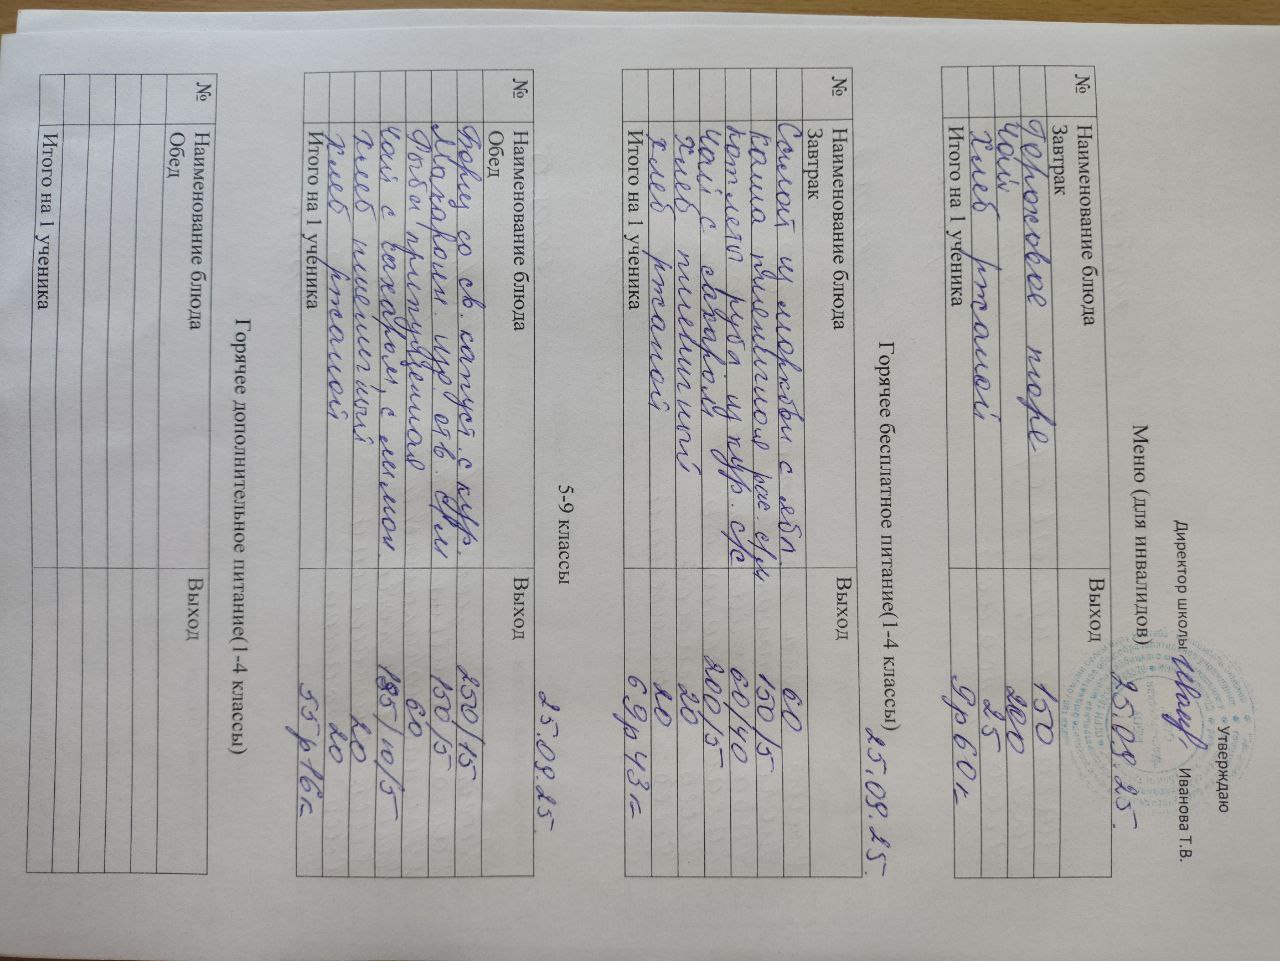 Утверждаю
Директор школы Иванова Т.В.
Меню (для инвалидов) 25.09.25.
№ Наименование блюда Выход
Завтрак
Гороховое пюре 150
Чай 200
Хлеб ржаной 25
Итого на 1 ученика 9р 60к
Горячее бесплатное питание(1-4 классы) 25.09.25.
№ Наименование блюда Выход
Завтрак
Салат из моркови с ябл. 60
Каша пшеничная рас. с/м 150/5
Котлеты руб. из кур. с/с 60/40
Чай с сахаром 200/5
Хлеб пшеничный 20
Хлеб ржаной 20
Итого на 1 ученика 69р 43к
5-9 классы 25.09.25.
№ Наименование блюда Выход
Обед
Борщ со св. капуст. с кур. 250/15
Макарон. изд отв. с/м 150/5
Рыба припущенная 60
Чай с сахаром, с лимон. 185/10/5
Хлеб пшеничный 20
Хлеб ржаной 20
Итого на 1 ученика 55р 16к
Горячее дополнительное питание(1-4 классы)
№ Наименование блюда Выход
Обед
Итого на 1 ученика